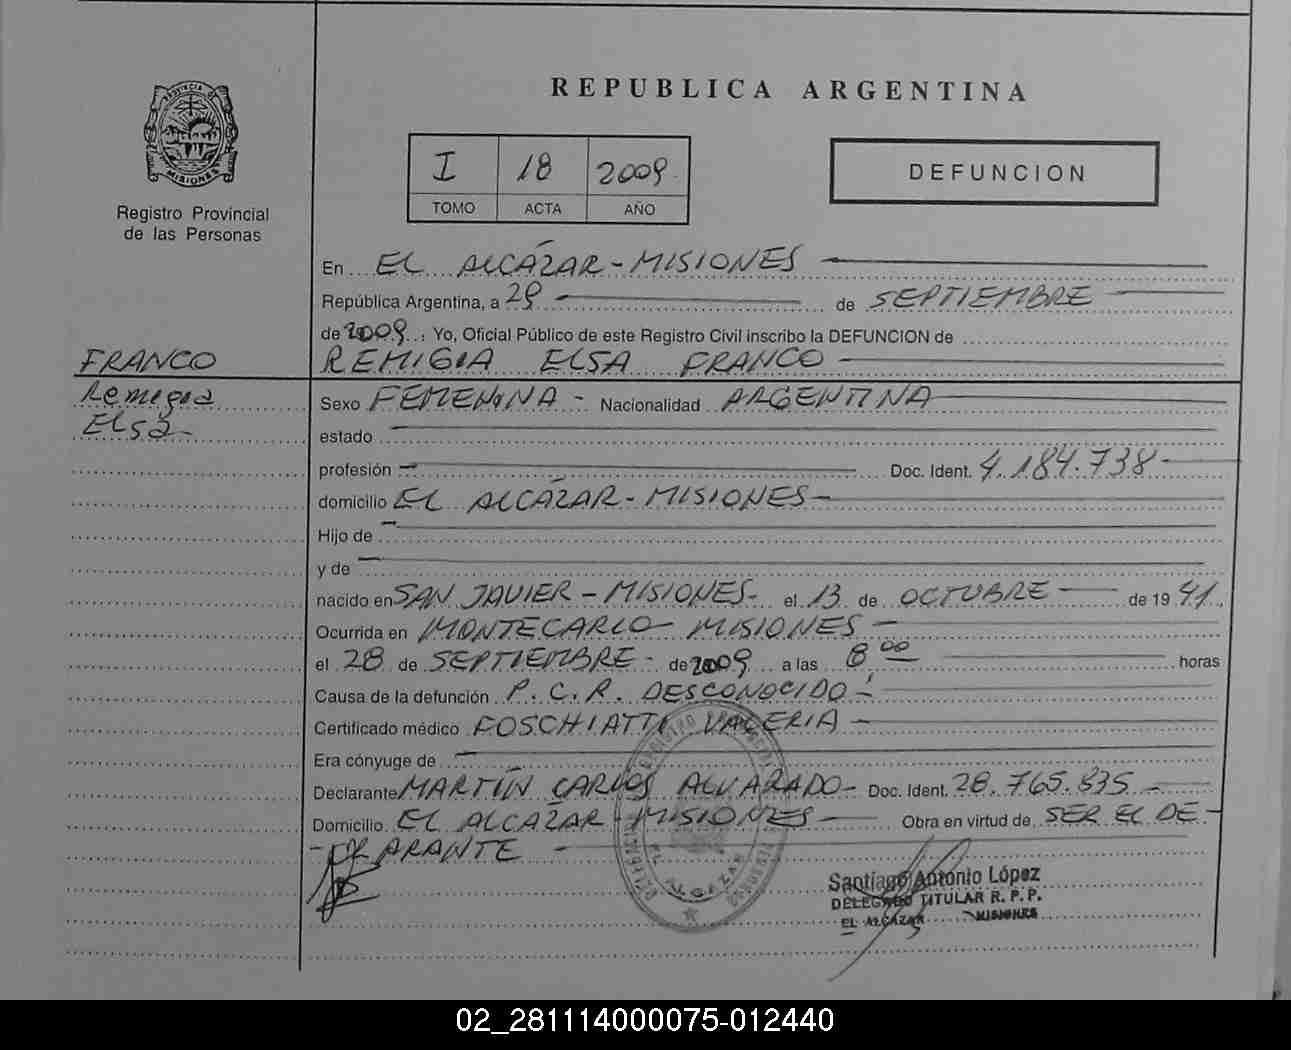 REPUBLICA ARGENTINA
PROVINCIA DE
MISIONES
Registro Provincial
de las Personas
I 18 2009
TOMO ACTA AÑO
DEFUNCION
En EL ALCÁZAR - MISIONES
República Argentina, a 29 de SEPTIEMBRE
de 2009. Yo, Oficial Público de este Registro Civil inscribo la DEFUNCION de
FRANCO
REMIGIA ELSA FRANCO
Remigia
Elsa
Sexo FEMENINA - Nacionalidad ARGENTINA
estado
profesión Doc. Ident. 4.184.738
domicilio EL ALCÁZAR - MISIONES -
Hijo de
y de
nacido en SAN JAVIER - MISIONES - el 13 de OCTUBRE de 19 41.
Ocurrida en MONTECARLO MISIONES -
el 28 de SEPTIEMBRE - de 2009 a las 8 00 horas
Causa de la defunción P.C.R. DESCONOCIDO -
Certificado médico FOSCHIATTI VALERIA -
Era cónyuge de
Declarante MARTÍN CARLOS ALVARADO - Doc. Ident. 28.765.835 -
Domicilio EL ALCAZAR - MISIONES Obra en virtud de SER EL DE -
- CLARANTE -
EL ALCAZAR
Santiago Antonio López
DELEGADO TITULAR R. P. P.
EL ALCAZAR MISIONES
02_281114000075-012440